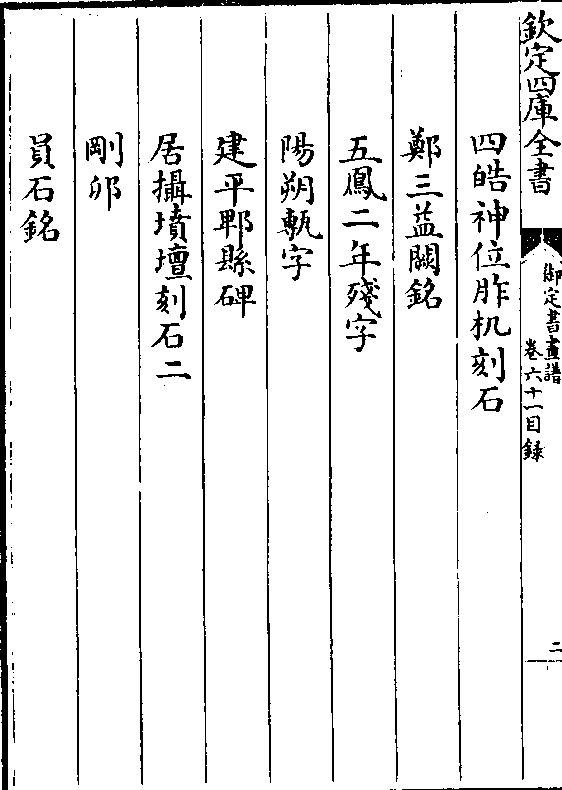 欽定四庫全書
御定書畫譜
卷六十一目録
二
四皓神位胙机刻石
鄭三益闕銘
五鳳二年殘字
陽朔甎字
建平郫縣碑
居攝墳壇刻石二
剛卯
員石銘